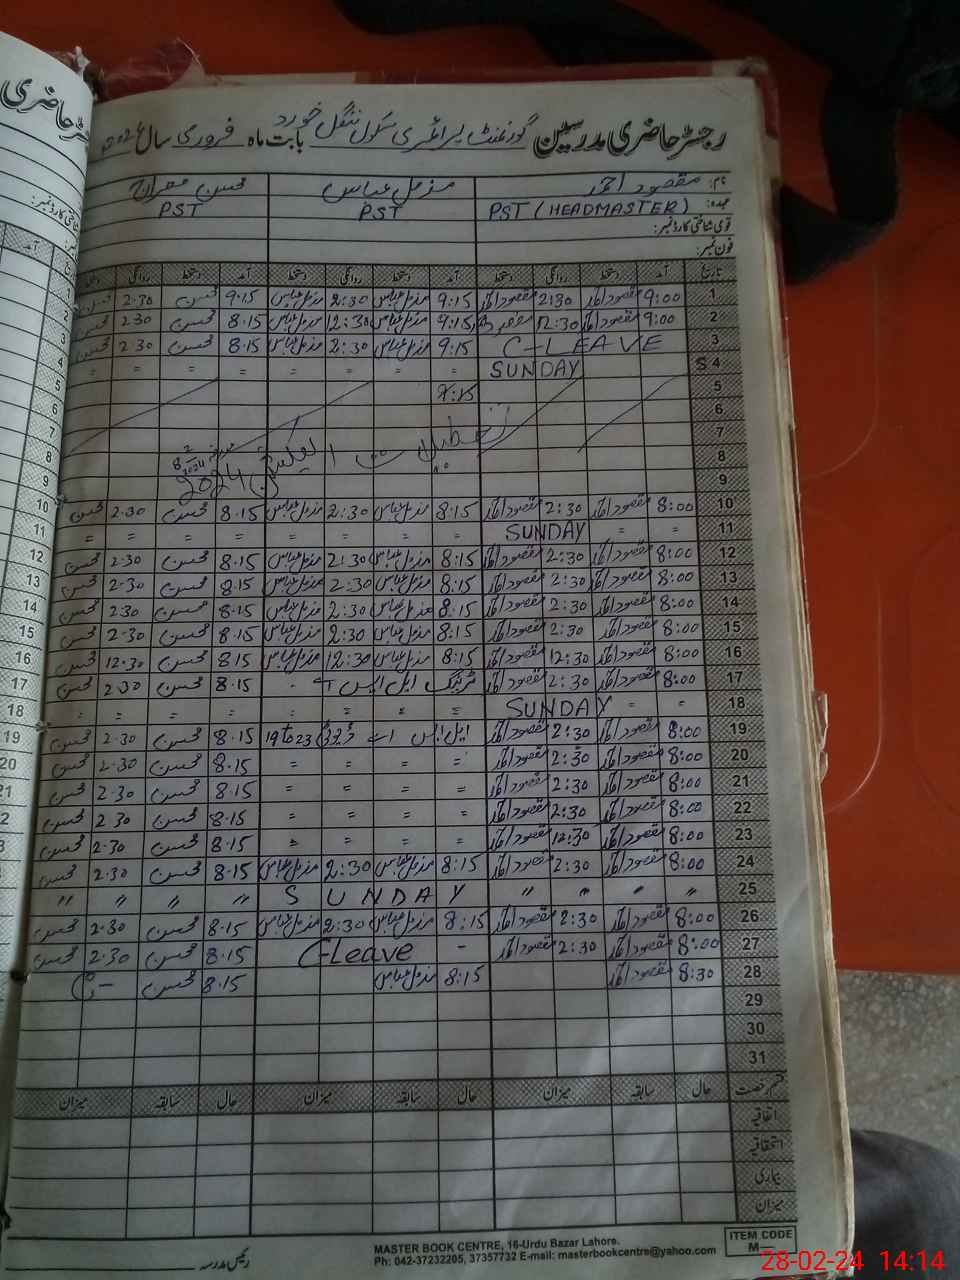 رجسٹر حاضری مدرسین گورنمنٹ پرائمری سکول ننگل خورد بابت ماہ فروری سال 2024
نام: مقصود احمد مزمل عباس محسن مہران
عہدہ: PST (HEADMASTER) PST PST
قومی شناختی کارڈ نمبر:
فون نمبر:
تاریخ آمد دستخط روانگی دستخط آمد دستخط روانگی دستخط آمد دستخط روانگی دستخط
1 9:00 مقصود احمد 2:30 مقصود احمد 9:15 مزمل عباس 2:30 مزمل عباس 9.15 محسن 2.30 محسن
2 9:00 مقصود احمد 12:30 مقصود احمد 9:15 مزمل عباس 12:30 مزمل عباس 8.15 محسن 2.30 محسن
3 C-LEAVE 9:15 مزمل عباس 2:30 مزمل عباس 8.15 محسن 2.30 محسن
4 S SUNDAY = = = = = = = =
5 9:15
6
7 تعطیلات
8 الیکشن 2024 8 2 2024
9
10 8:00 مقصود احمد 2:30 مقصود احمد 8:15 مزمل عباس 2:30 مزمل عباس 8.15 محسن 2.30 محسن
11 = = SUNDAY = = = = = = = =
12 8:00 مقصود احمد 2:30 مقصود احمد 8:15 مزمل عباس 2:30 مزمل عباس 8.15 محسن 2.30 محسن
13 8:00 مقصود احمد 2:30 مقصود احمد 8:15 مزمل عباس 2:30 مزمل عباس 8.15 محسن 2.30 محسن
14 8:00 مقصود احمد 2:30 مقصود احمد 8:15 مزمل عباس 2:30 مزمل عباس 8.15 محسن 2.30 محسن
15 8:00 مقصود احمد 2:30 مقصود احمد 8:15 مزمل عباس 2:30 مزمل عباس 8.15 محسن 2.30 محسن
16 8:00 مقصود احمد 12:30 مقصود احمد 8:15 مزمل عباس 12:30 مزمل عباس 8.15 محسن 12.30 محسن
17 8:00 مقصود احمد 2:30 مقصود احمد ٹریننگ ایل ایس اے 8.15 محسن 2.30 محسن
18 = = SUNDAY = = = = = = =
19 8:00 مقصود احمد 2:30 مقصود احمد ایل ایس اے ڈیوٹی 19 تا 23 8.15 محسن 2.30 محسن
20 8:00 مقصود احمد 2:30 مقصود احمد = = = = 8.15 محسن 2.30 محسن
21 8:00 مقصود احمد 2:30 مقصود احمد = = = = 8.15 محسن 2.30 محسن
22 8:00 مقصود احمد 2:30 مقصود احمد = = = = 8.15 محسن 2.30 محسن
23 8:00 مقصود احمد 12:30 مقصود احمد = = = = 8.15 محسن 2.30 محسن
24 8:00 مقصود احمد 2:30 مقصود احمد 8:15 مزمل عباس 2:30 مزمل عباس 8.15 محسن 2.30 محسن
25 " " " " SUNDAY " " " "
26 8:00 مقصود احمد 2:30 مقصود احمد 8:15 مزمل عباس 2:30 مزمل عباس 8.15 محسن 2.30 محسن
27 8:00 مقصود احمد 2:30 مقصود احمد - C-Leave 8.15 محسن 2.30 محسن
28 8:30 مقصود احمد 8:15 مزمل عباس 8.15 محسن
29
30
31
قسم رخصت حال سابقہ میزان حال سابقہ میزان حال سابقہ میزان
اتفاقیہ
استحقاقیہ
بیماری
میزان
رئیس مدرسہ
MASTER BOOK CENTRE, 16-Urdu Bazar Lahore.
Ph: 042-37232205, 37357732 E-mail: masterbookcentre@yahoo.com
ITEM CODE
M—
28-02-24 14:14